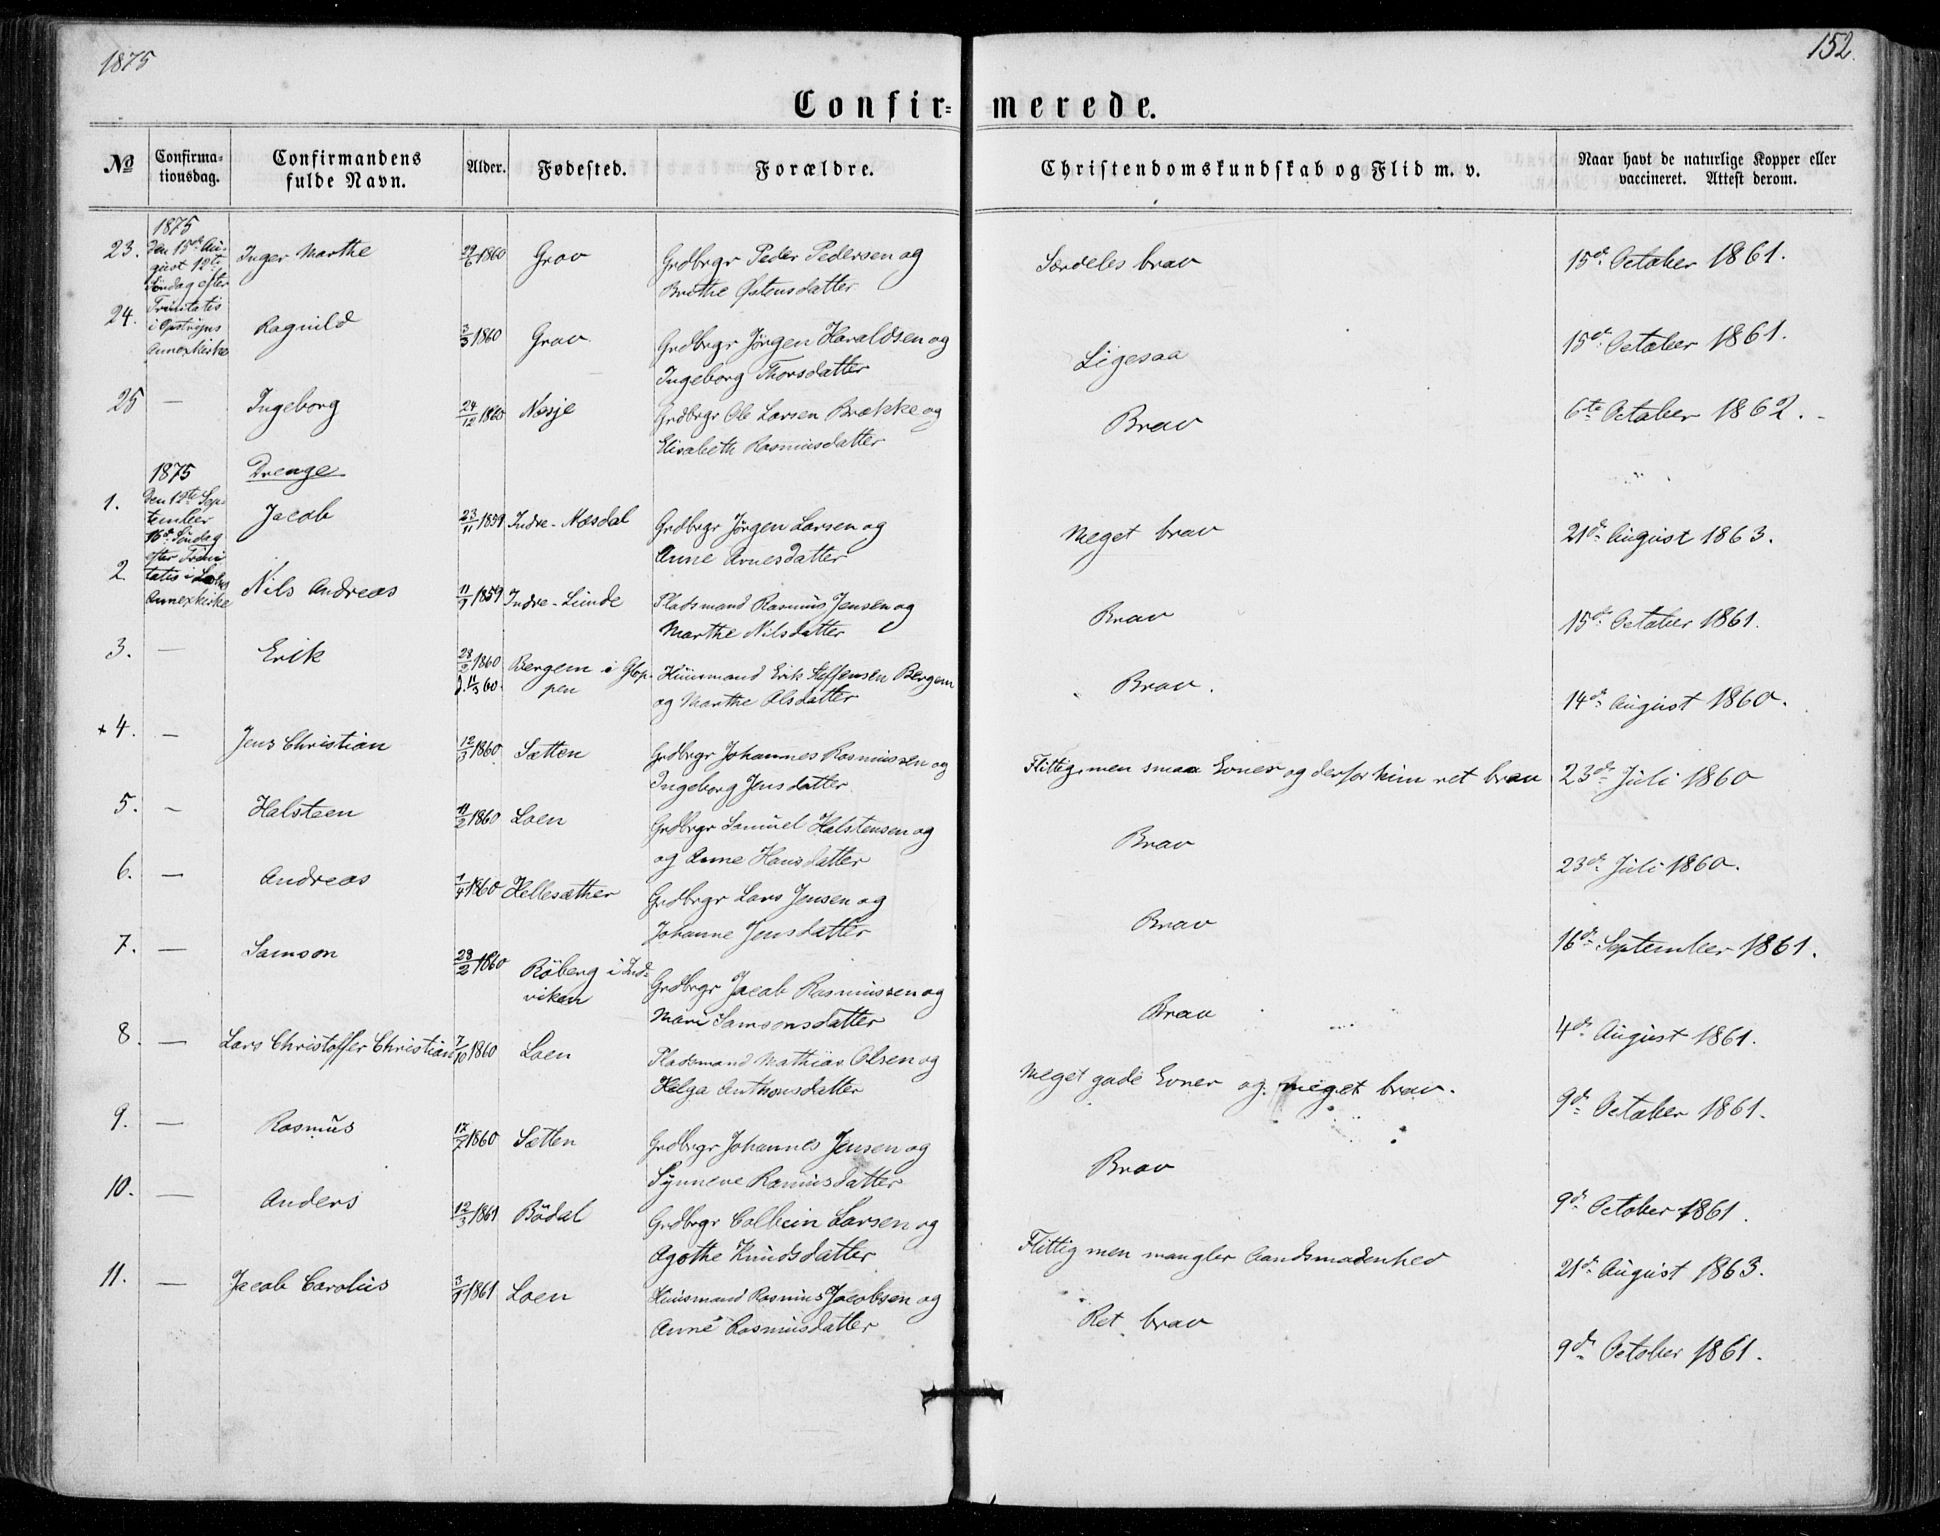 1875
152.
Confir= merede.
No
Confirma-
tionsdag.
Confirmandens
fulde Navn.
Alder.
Fødested.
Forældre.
Christendomskundskab og Flid m. v.
Naar havt de naturlige Kopper eller
vaccineret. Attest derom.
1875
23. den 15de Au- Inger Marthe 29/6 1860 Grov Grdbrgr Peder Pedersen og Særdeles brav 15de October 1861.
gust 12te
Søndag efter Brithe Østensdatter
24. Trinitatis Ragnild 3/3 1860 Grov Grdbrgr Jörgen Haraldsen og Ligesaa 15de October 1861.
i Opstryns
Annexkirke Ingeborg Thorsdatter
25 — Ingeborg 24/12 1860 Nosje Grdbrgr Ole Larsen Brække og Brav 6te October 1862.
Elisabeth Rasmusdatter
1875 Drenge
1. den 12te Sep- Jacob 23/11 1859 Indre-Næsdal Grdbrgr Jörgen Larsen og Meget brav 21de August 1863.
tember
16de Söndag Anne Arnesdatter
efter Trini
2. tatis i Loens Nils Andreas 11/9 1859 Indre-Lunde Pladsmand Rasmus Jensen og Brav 15de October 1861.
Annexkirke Marthe Nilsdatter
3. — Erik 28/2 1860 Bergem i Glop- Huusmand Erik Steffensen Bergem Brav. 14de August 1860.
d. 11/3 60. pen og Marthe Olsdatter
+ 4. — Jens Christian 12/3 1860 Sætten Grdbrgr Johannes Rasmussen og Flittig, men smaa Evner og derfor kun ret brav 23de Juli 1860
Ingeborg Jensdatter
5. — Halsteen 11/2 1860 Loen Grdbrgr Samuel Halstensen og Brav 23de Juli 1860.
og Anne Hansdatter
6. — Andreas 1/4 1860 Hellesæther Grdbrgr Lars Jensen og Brav 16de September 1861.
Johanne Jensdatter
7. — Samson 28/2 1860 Röberg i Ind- Grdbrgr Jacob Rasmussen og Brav 4de August 1861.
viken Mari Samsonsdatter
8. — Lars Christoffer Christian 7/10 1860 Loen Pladsmand Mathias Olsen og Meget gode Evner og meget brav. 9de October 1861.
Helga Anthonsdatter
9. — Rasmus 17/7 1860 Sætten Grdbrgr Johannes Jensen og Brav 9de October 1861.
Synneve Rasmusdatter
10. — Anders 12/3 1861 Bödal Grdbrgr Colbein Larsen og Flittig men mangler Aandsmodenhed 21de August 1863.
Agothe Knudsdatter
11. — Jacob Carolus 3/1 1861 Loen Huusmand Rasmus Jacobsen og Ret brav 9de October 1861.
Anne Rasmusdatter